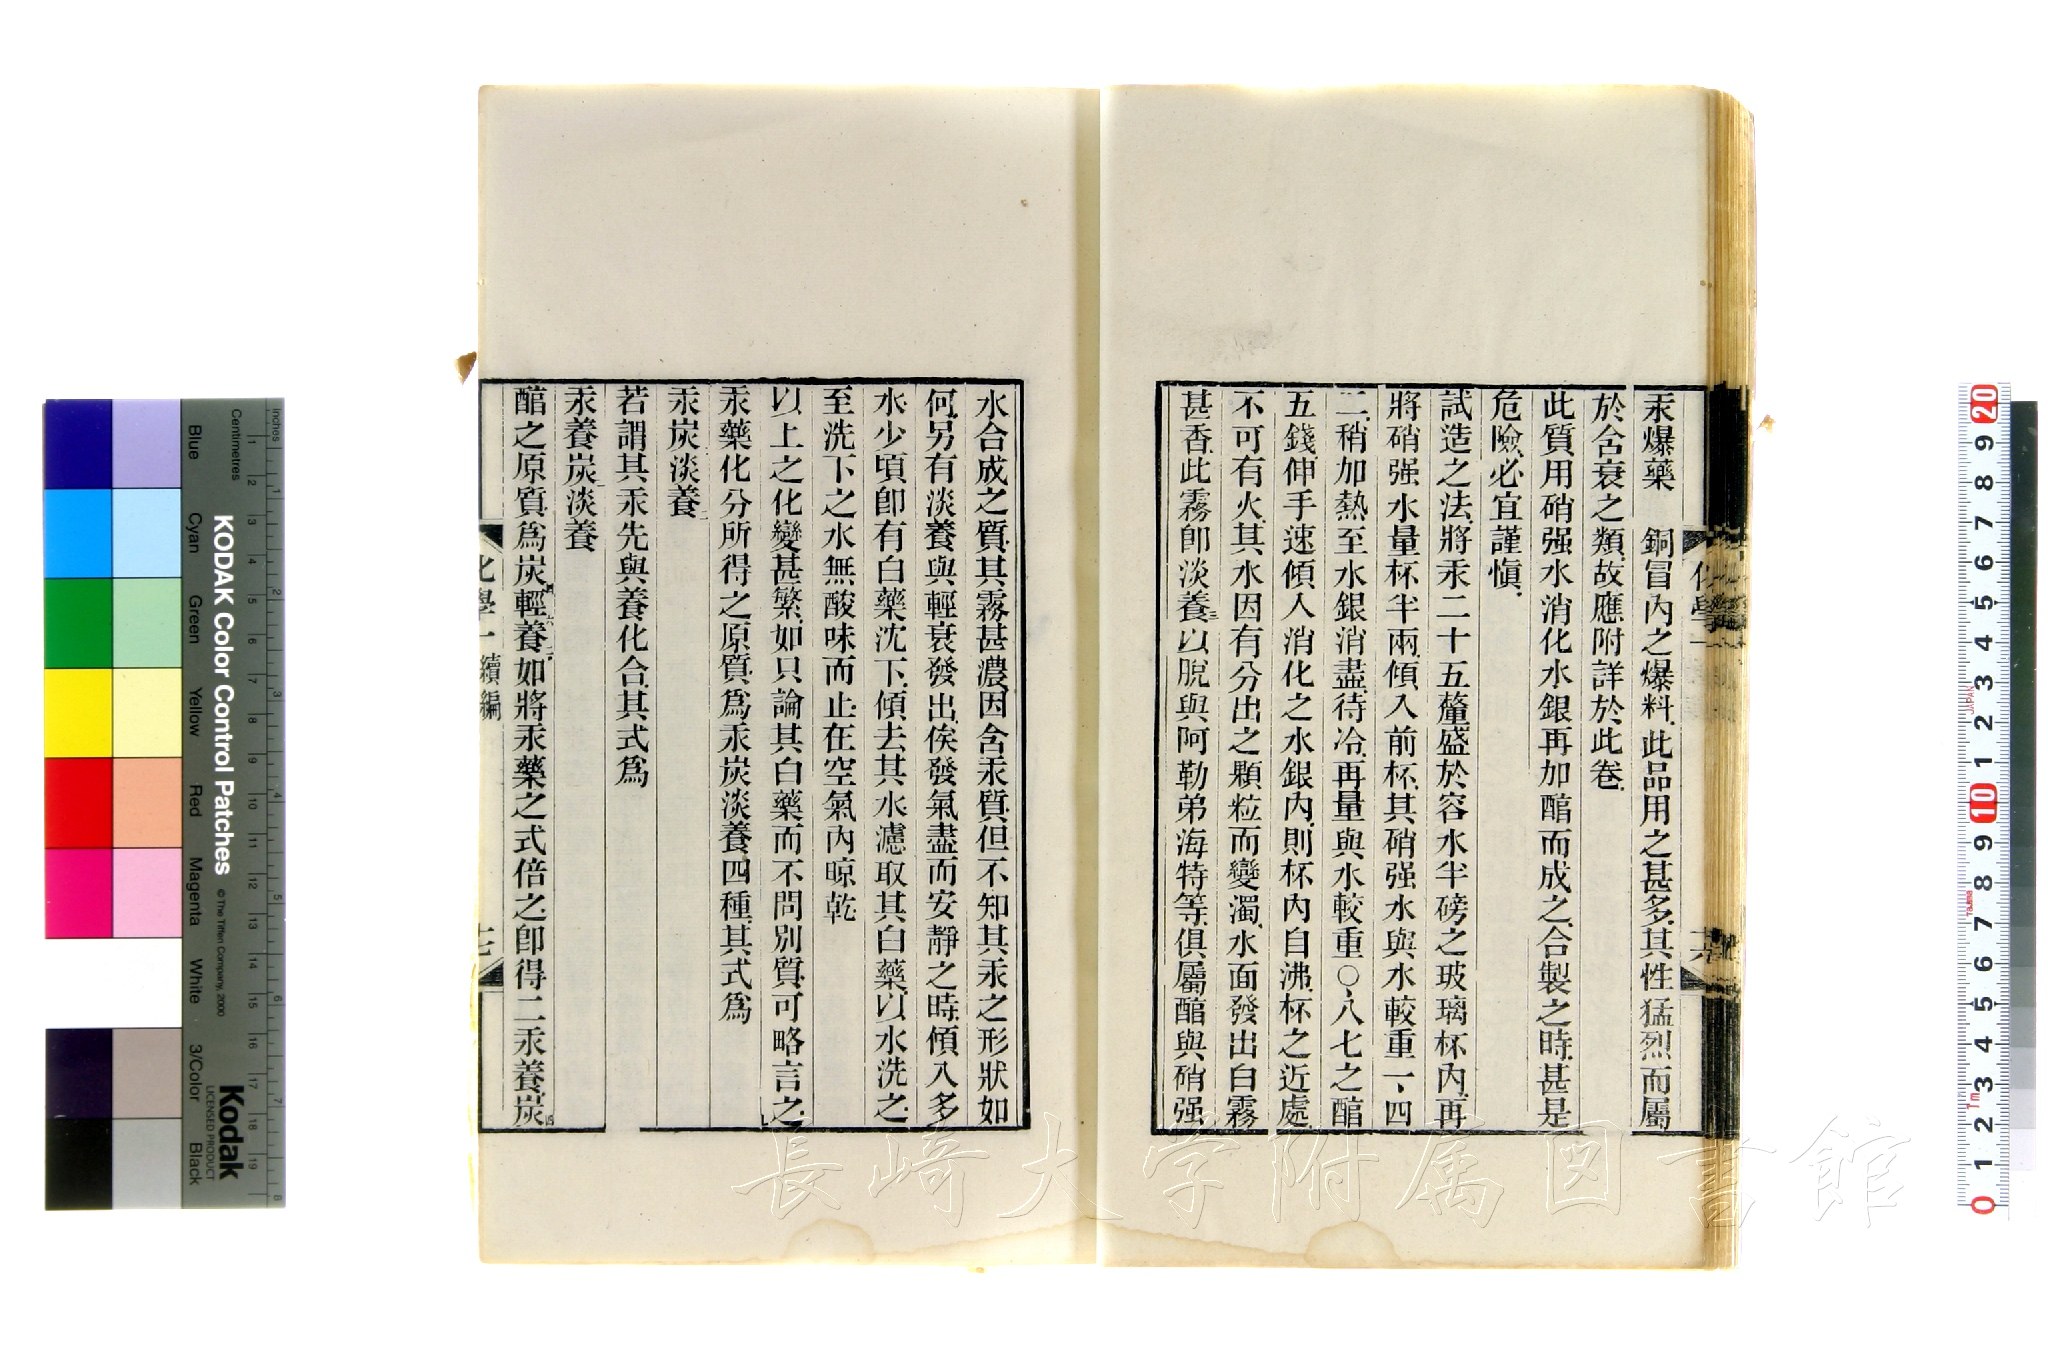 汞爆藥　銅冒內之爆料、此品用之甚多、其性猛烈而屬
於含衰之類、故應附詳於此卷、
此質用硝强水消化水銀再加醕而成之、合製之時、甚是
危險、必宜謹愼、
試造之法、將汞二十五釐盛於容水半磅之玻璃杯內、再
將硝强水量杯半兩、傾入前杯、其硝强水與水較重一、四
二、稍加熱至水銀消盡、待冷、再量與水較重〇、八七之醕
五錢、伸手速傾入消化之水銀內、則杯內自沸、杯之近處
不可有火、其水因有分出之顆粒而變濁、水面發出白霧
甚香、此霧卽淡養三以脫與阿勒弟海特等、俱屬醕與硝强
化學一
水合成之質、其霧甚濃、因含汞質、但不知其汞之形狀如
何、另有淡養與輕衰發出、俟發氣盡而安靜之時、傾入多
水、少頃卽有白藥沈下、傾去其水、濾取其白藥、以水洗之
至洗下之水無酸味而止、在空氣內晾乾、
以上之化變甚繁、如只論其白藥而不問別質、可略言之、
汞藥化分所得之原質、爲汞炭淡養四種、其式爲
汞炭淡養二
若謂其汞先與養化合、其式爲
汞養炭淡養
醕之原質、爲炭四輕六養二如將汞藥之式倍之、卽得二汞養炭四
化學一 續編
Inches
Centimetres
KODAK Color Control Patches
© The Tiffen Company, 2000
Blue
Cyan
Green
Yellow
Red
Magenta
White
3/Color
Black
Kodak
LICENSED PRODUCT
長崎大学附属図書館